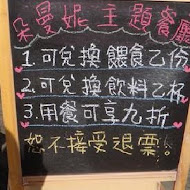 朵曼妮主題餐廳
1.可兌換餵食乙份
2.可兌換飲料乙杯
3.用餐可享九折
恕不接受退票。